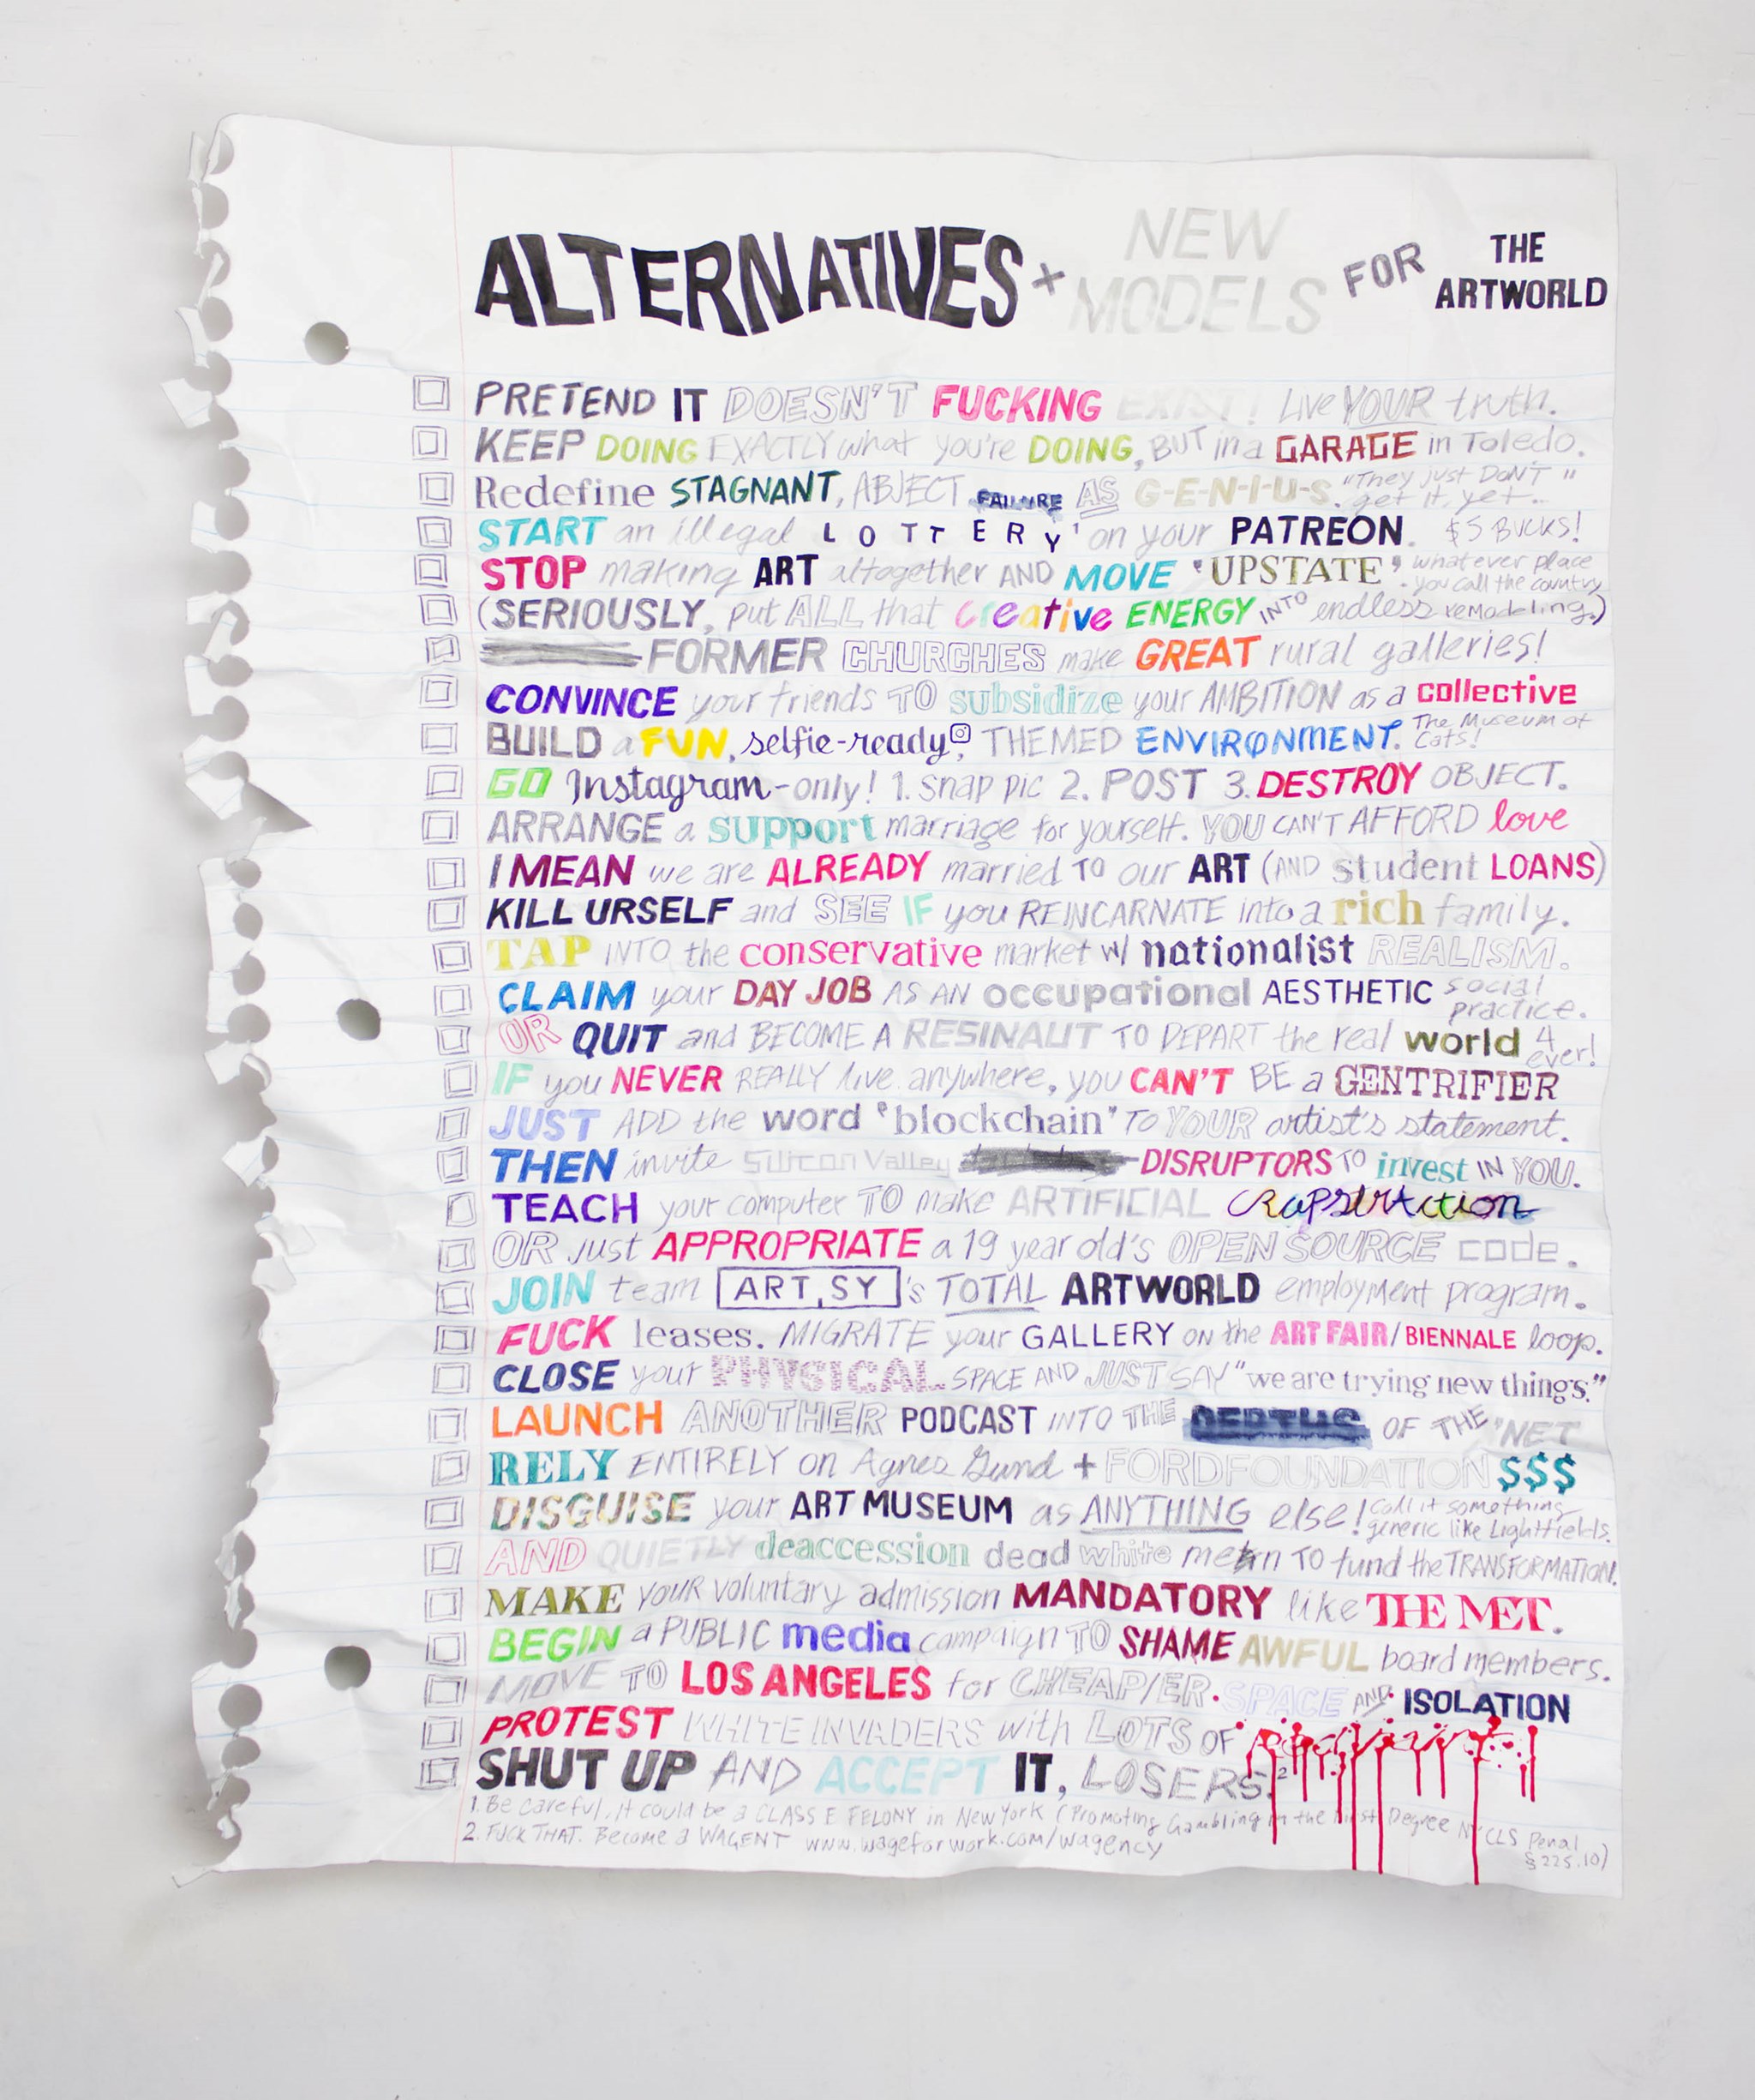 ALTERNATIVES + NEW MODELS FOR THE ARTWORLD
PRETEND IT DOESN'T FUCKING EXIST! Live YOUR truth.
KEEP DOING EXACTLY what you're DOING, BUT in a GARAGE in Toledo.
Redefine STAGNANT, ABJECT FAILURE AS G-E-N-I-U-S. "They just DON'T get it, yet..."
START an illegal LOTTERY¹ on your PATREON. $5 BUCKS!
STOP making ART altogether AND MOVE 'UPSTATE', whatever place you call the country.
(SERIOUSLY, put ALL that creative ENERGY INTO endless remodeling.)
FORMER CHURCHES make GREAT rural galleries!
CONVINCE your friends TO subsidize your AMBITION as a collective
BUILD a FUN, selfie-ready, THEMED ENVIRONMENT. The Museum of Cats!
GO Instagram-only! 1. snap pic 2. POST 3. DESTROY OBJECT.
ARRANGE a support marriage for yourself. YOU CAN'T AFFORD love
I MEAN we are ALREADY married TO our ART (AND student LOANS)
KILL URSELF and SEE IF you REINCARNATE into a rich family.
TAP INTO the conservative market w/ nationalist REALISM.
CLAIM your DAY JOB AS AN occupational AESTHETIC social practice.
OR QUIT and BECOME A RESINAUT TO DEPART the real world 4 ever!
IF you NEVER REALLY live anywhere, you CAN'T BE a GENTRIFIER
JUST ADD the word 'blockchain' TO YOUR artist's statement.
THEN invite Silicon Valley DISRUPTORS TO invest IN YOU.
TEACH your computer TO make ARTIFICIAL RapstrAction
OR just APPROPRIATE a 19 year old's OPEN SOURCE code.
JOIN team ART,SY's TOTAL ARTWORLD employment program.
FUCK leases. MIGRATE your GALLERY ON the ART FAIR/BIENNALE loop.
CLOSE your PHYSICAL SPACE AND JUST SAY "we are trying new things."
LAUNCH ANOTHER PODCAST INTO THE DEPTHS OF THE 'NET
RELY ENTIRELY on Agnes Gund + FORD FOUNDATION $$$
DISGUISE your ART MUSEUM as ANYTHING else! Call it something generic like Lightfields.
AND QUIETLY deaccession dead white men TO fund the TRANSFORMATION.
MAKE YOUR voluntary admission MANDATORY like THE MET.
BEGIN a PUBLIC media campaign TO SHAME AWFUL board members.
MOVE TO LOS ANGELES for CHEAP/ER. SPACE AND ISOLATION
PROTEST WHITE INVADERS with LOTS OF
SHUT UP AND ACCEPT IT, LOSERS.²
1. Be careful, it could be a CLASS E FELONY in New York (Promoting Gambling in the First Degree NY CLS Penal § 225.10)
2. FUCK THAT. Become a WAGENT www.wageforwork.com/wagency